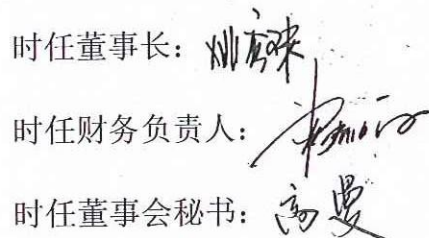 时任董事长：
时任财务负责人：
时任董事会秘书：高曼